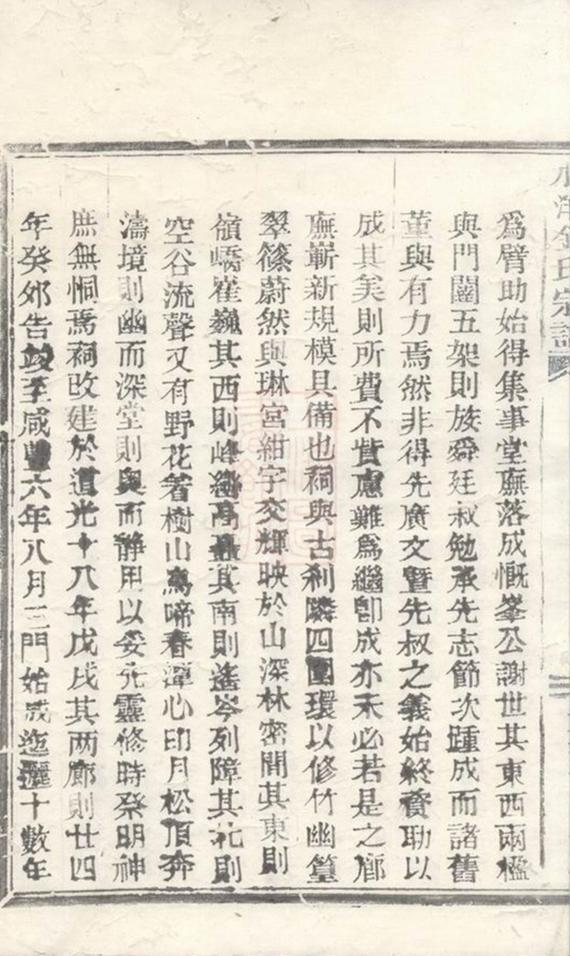 為臂助始得集事堂廡落成慨峯公謝世其東西兩楹
與門闥五架則族舜廷叔勉承先志節次踵成而諸舊
董與有力焉然非得先廣文暨先叔之義始終資助以
成其美則所費不貲慮難為繼卽成亦未必若是之廊
廡嶄新規模具備也祠與古剎隣四圍環以修竹幽篁
翠篠蔚然與琳宮紺宇交輝映於山深林密間其東則
嶺嶠崔巍其西則峰巒高聳其南則遙岑列障其北則
空谷流聲又有野花著樹山鳥啼春潭心印月松頂奔
濤境則幽而深堂則奧而靜用以妥先靈修時祭明神
庶無恫焉祠改建於道光十八年戊戌其两廊則廿四
年癸卯告竣至咸豐六年八月三門始成迤邐十數年
金氏宗譜